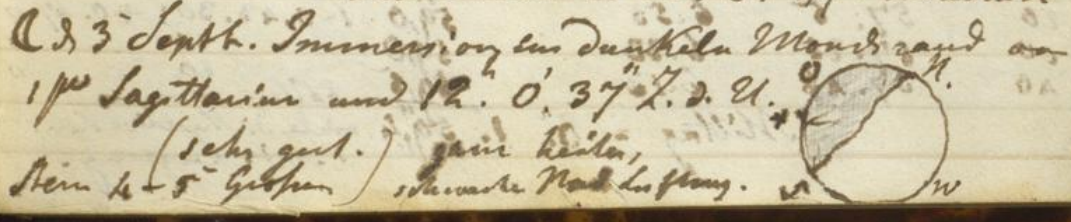 ☾ d 3 Septb. Immersion am dunkeln Mondsrand von
1 μ Sagittarius um 12.h 0' 37" Z. d. U.
(sehr gut.) ganz heiter,
Stern 4-5 Größe) schwache Nord Luftung.
O N.
* S W